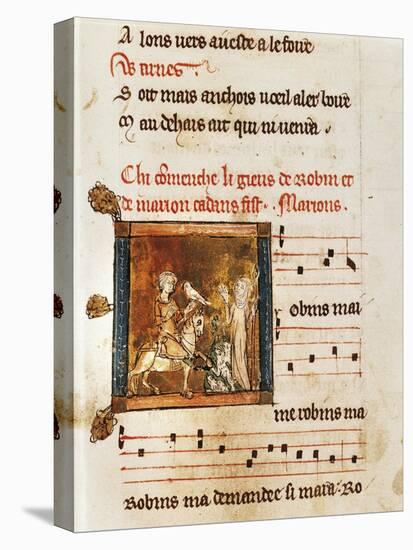 A lons vers aueste a le foire
Soit mais anchois voeil aler boire
Mau dehais ait qui ni uenra.
Chi comenche li gieus de Robin et
de marion cadans fist. Marions.
obins mai
me robins ma
Robins ma demandee si mara. Ro